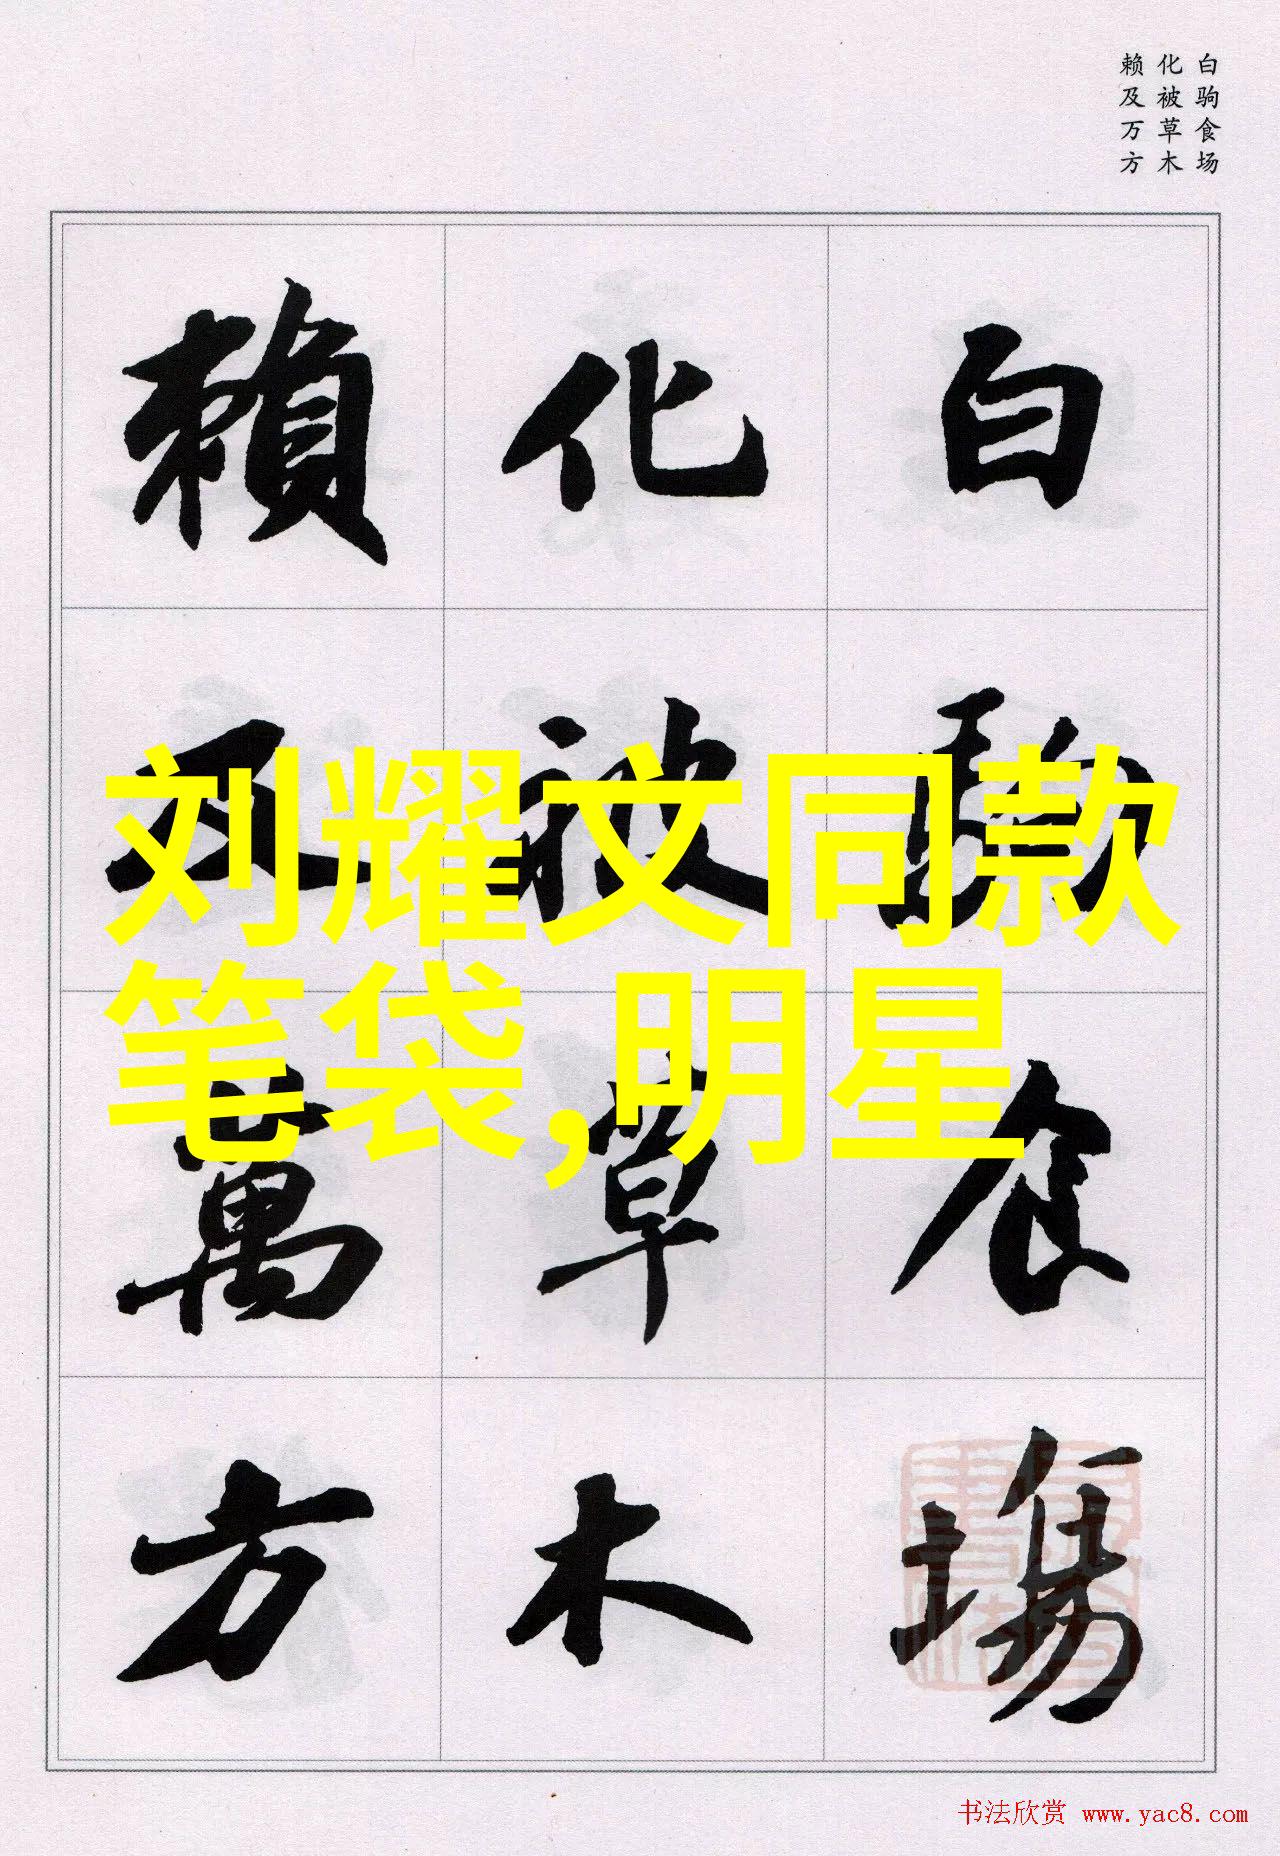 白驹食场
化被草木
赖及万方
白駒食場
化被草木
賴及萬方
刘耀文同款
笔袋,明星
书法欣赏 www.yac8.com